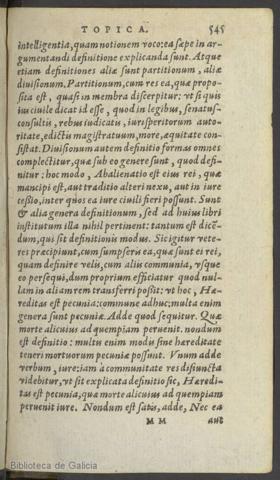 TOPICA. 545
intelligentia, quam notionem voco: ea sæpe in ar-
gumentandi definitione explicanda sunt. Atque
etiam definitiones aliæ sunt partitionum, aliæ
diuisionum. Partitionum, cum res ea, quæ propo-
sita est, quasi in membra discerpitur: vt si quis
ius ciuile dicat id esse, quod in legibus, senatus-
consultis, rebus iudicatis, iurisperitorum auto-
ritate, edictis magistratuum, more, æquitate con-
sistat. Diuisionum autem definitio formas omnes
complectitur, quæ sub eo genere sunt, quod defi-
nitur: hoc modo, Abalienatio est eius rei, quæ
mancipi est, aut traditio alteri nexu, aut in iure
cessio, inter quos ea iure ciuili fieri possunt. Sunt
& alia genera definitionum, sed ad huius libri
institutum illa nihil pertinent: tantum est dicē-
dum, quis sit definitionis modus. Sic igitur vete-
res præcipiunt, cum sumpseris ea, quæ sunt ei rei,
quam definire velis, cum aliis communia, vsque
eo persequi, dum proprium efficiatur quod nul-
lam in aliam rem transferri possit: vt hoc, Hæ-
reditas est pecunia: commune adhuc: multa enim
genera sunt pecuniæ. Adde quod sequitur. Quæ
morte alicuius ad quempiam peruenit. nondum
est definitio: multis enim modis sine hæreditate
teneri mortuorum pecuniæ possunt. Vnum adde
verbum, iure: iam à communitate res disiuncta
videbitur, vt sit explicata definitio sic, Heredi-
tas est pecunia, quæ morte alicuius ad quempiam
peruenit iure. Nondum est satis, adde, Nec ea
M M aut
Biblioteca de Galicia